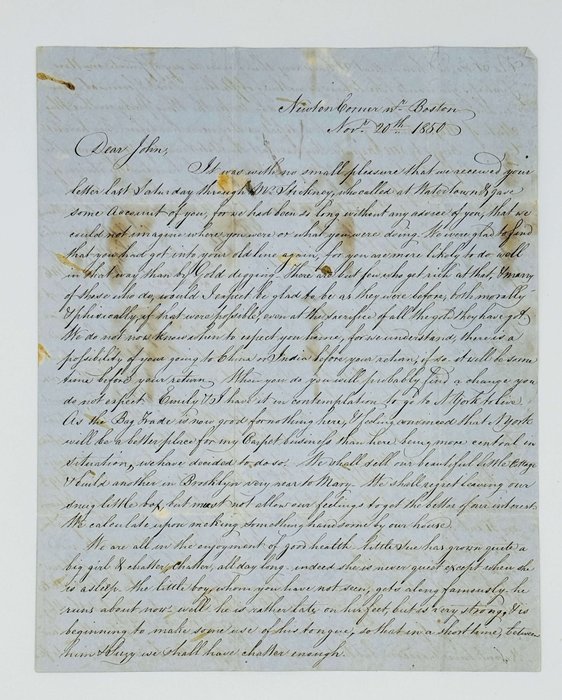 Newton Corner nr. Boston
Novr. 20th. 1850
Dear John,
It was with no small pleasure that we received your
letter last Saturday through Mr. Stickney, who called at Watertown & gave
some account of you, for we had been so long without any advice of you, that we
could not imagine where you were or what you were doing. We were glad to find
that you had got into your old line again, for you are more likely to do well
in that way than by Gold digging. There are but few who get rich at that, & many
of those who do, would I expect be glad to be as they were before, both morally
& phisically, if that were possible, even at the sacrifice of all the gold they have got.
We do not now know when to expect you home, for we understand, there is a
possibility of your going to China or India before your return, if so it will be some
time before your return. When you do you will probably find a change you
do not expect. Emily & I have it in contemplation to go to N York to live.
As the Bag Trade is now good for nothing here, & feeling convinced that N York
will be a better place for my Carpet business than here being more central in
situation, we have decided to do so. We shall sell our beautiful little Cottage
& build another in Brooklyn very near to Mary. We shall regret leaving our
snug little box, but must not allow our feelings to get the better of our interest.
We calculate upon making something handsome by our house.
We are all in the enjoyment of good health. Little Sue has grown quite a
big girl & chatter, chatter, all day long. indeed she is never quiet except when she
is asleep. the little boy, whom you have not seen, gets along famously, he
runs about now well he is rather late on his feet, but is very strong, & is
beginning to make some use of his tongue, so that in a short time, between
him & Suzy we shall have chatter enough.